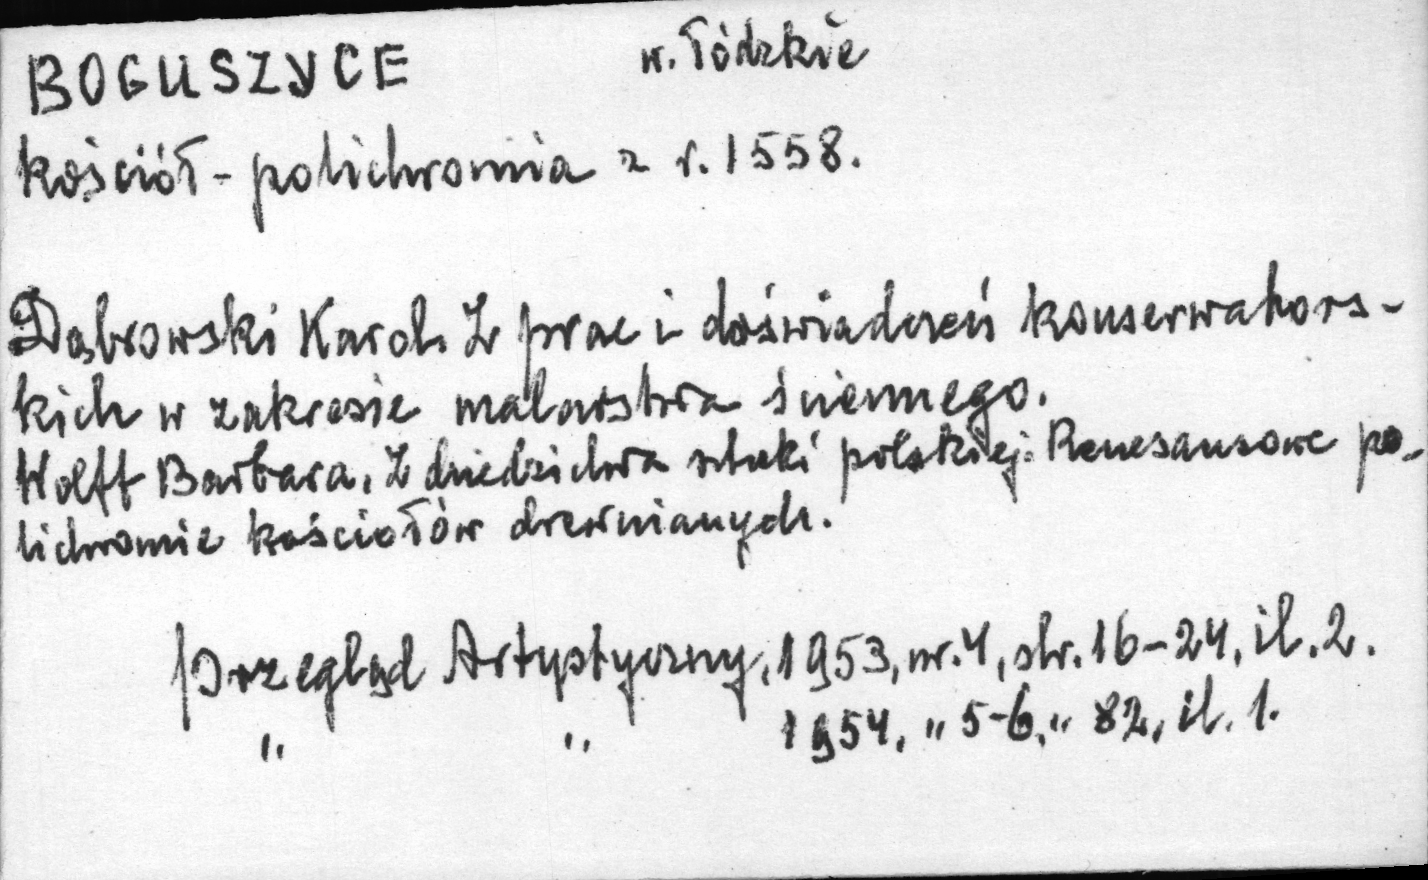 BOGUSZYCE w. łódzkie
kościół - polichromia z r. 1558.
Dąbrowski Karol. Z prac i doświadczeń konserwators-
kich w zakresie malarstwa ściennego.
Wolff Barbara. Z dziedzictwa sztuki polskiej. Renesansowe po-
lichromie kościołów drewnianych.
Przegląd Artystyczny, 1953, nr. 4, str. 16-24, il. 2.
" " 1954, " 5-6, " 82, il. 1.